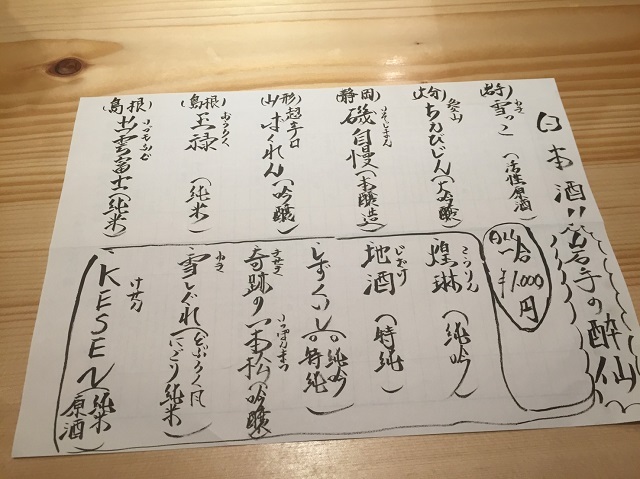 日本酒!!
(岩手)雪っこ(活性原酒)
ゆき
(大分)ちえびじん(大吟醸)
(静岡)磯自慢(本醸造)
いそじまん
(山形)超辛口ばくれん(吟醸)
(島根)玉禄(純米)
おうろく
(島根)出雲富士(純米)
いづもふじ
岩手の酔仙
All一合¥1,000円
煌琳(純吟)
こうりん
地酒(特純)
じざけ
奇跡の一本松(吟醸)
きせき
いっぽんまつ
雪しぐれ(どぶろく風にごり純米)
ゆき
KESEN(純米原酒)
けせん